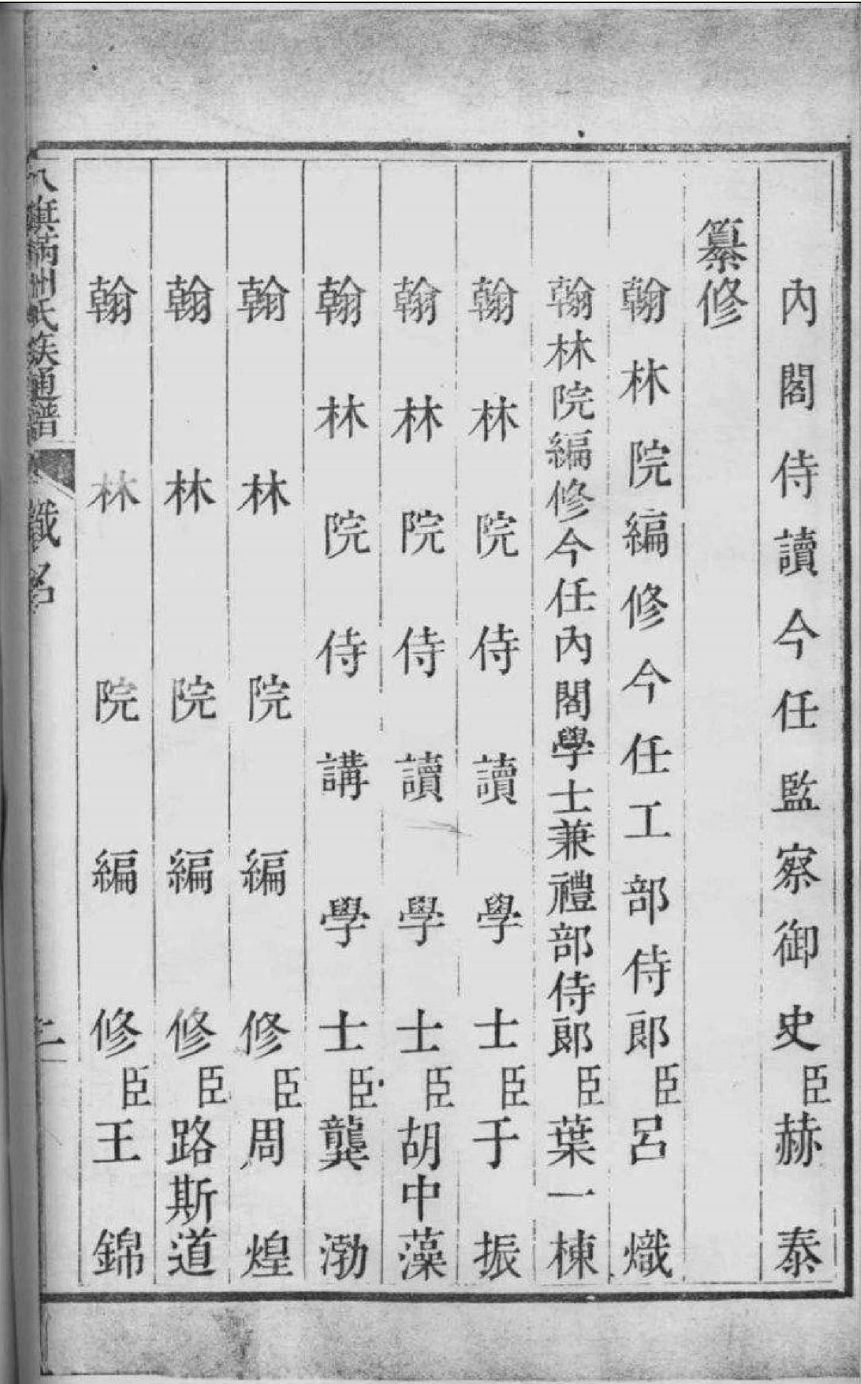 內閣侍讀今任監察御史臣赫泰
纂修
翰林院編修今任工部侍郎臣呂熾
翰林院編修今任內閣學士兼禮部侍郎臣葉一棟
翰林院侍讀學士臣于振
翰林院侍讀學士臣胡中藻
翰林院侍講學士臣龔渤
翰林院編修臣周煌
翰林院編修臣路斯道
翰林院編修臣王錦
八旗滿洲氏族通譜 職名 二